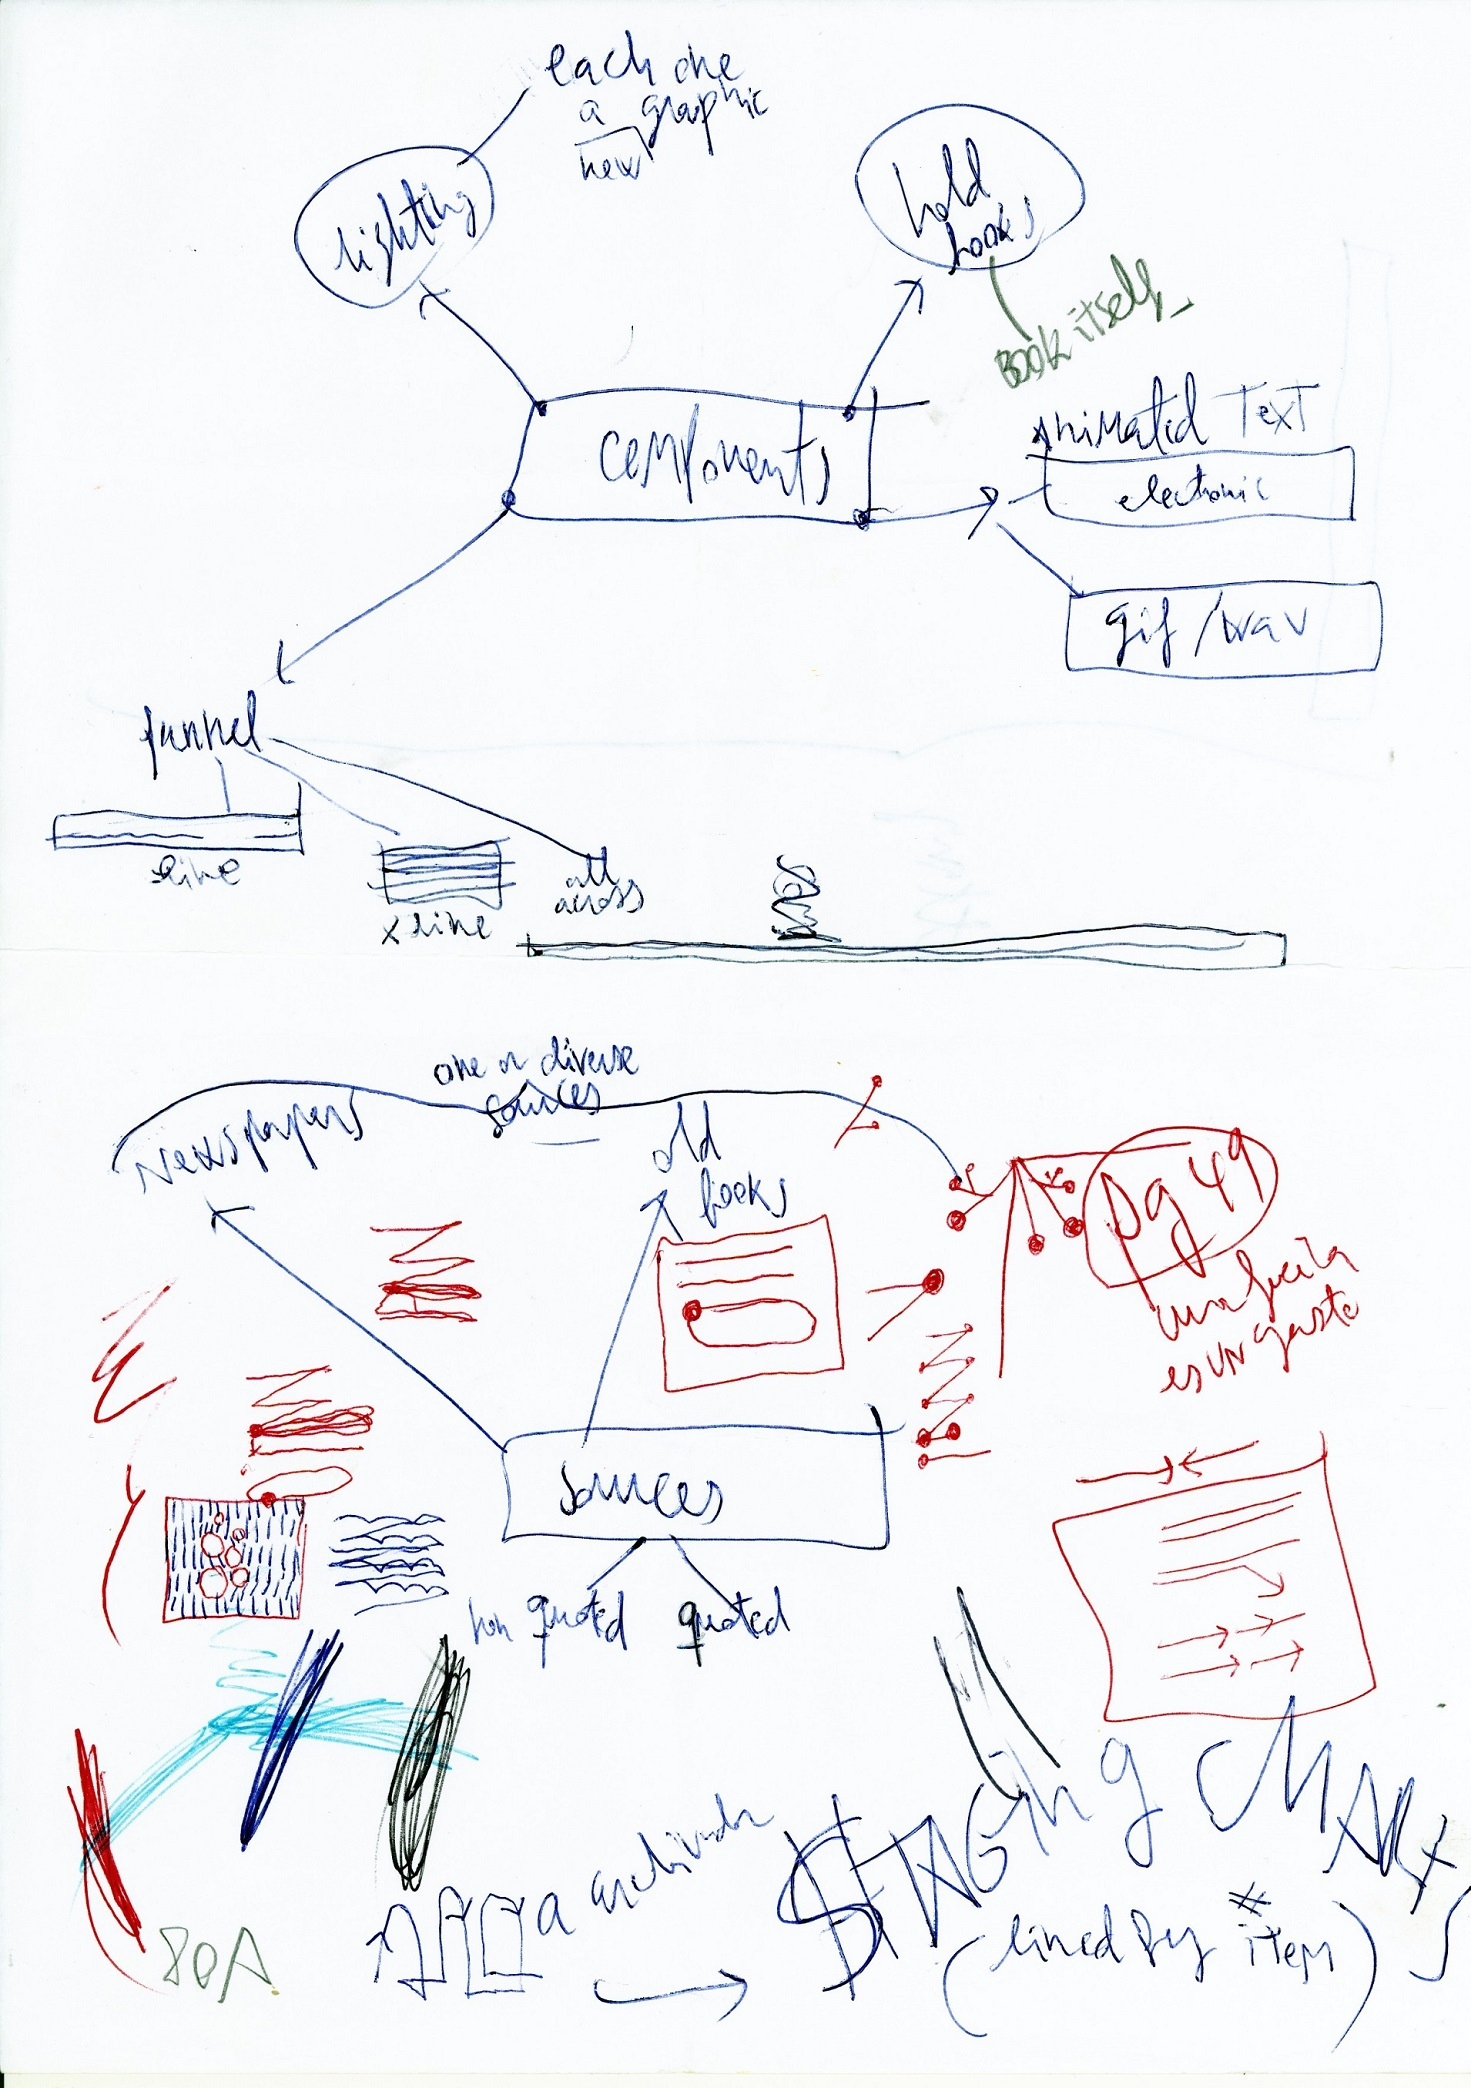 each one
a graphic
new
lighting
hold
books
Book itself
components
Animated Text
electronic
gif / wav
funnel
line
x line
all
across
one or diverse
sources
Newspapers
old
books
pg 49
es un gasto
sources
non quoted
quoted
STAGING MARX
(lined by # item)
80A